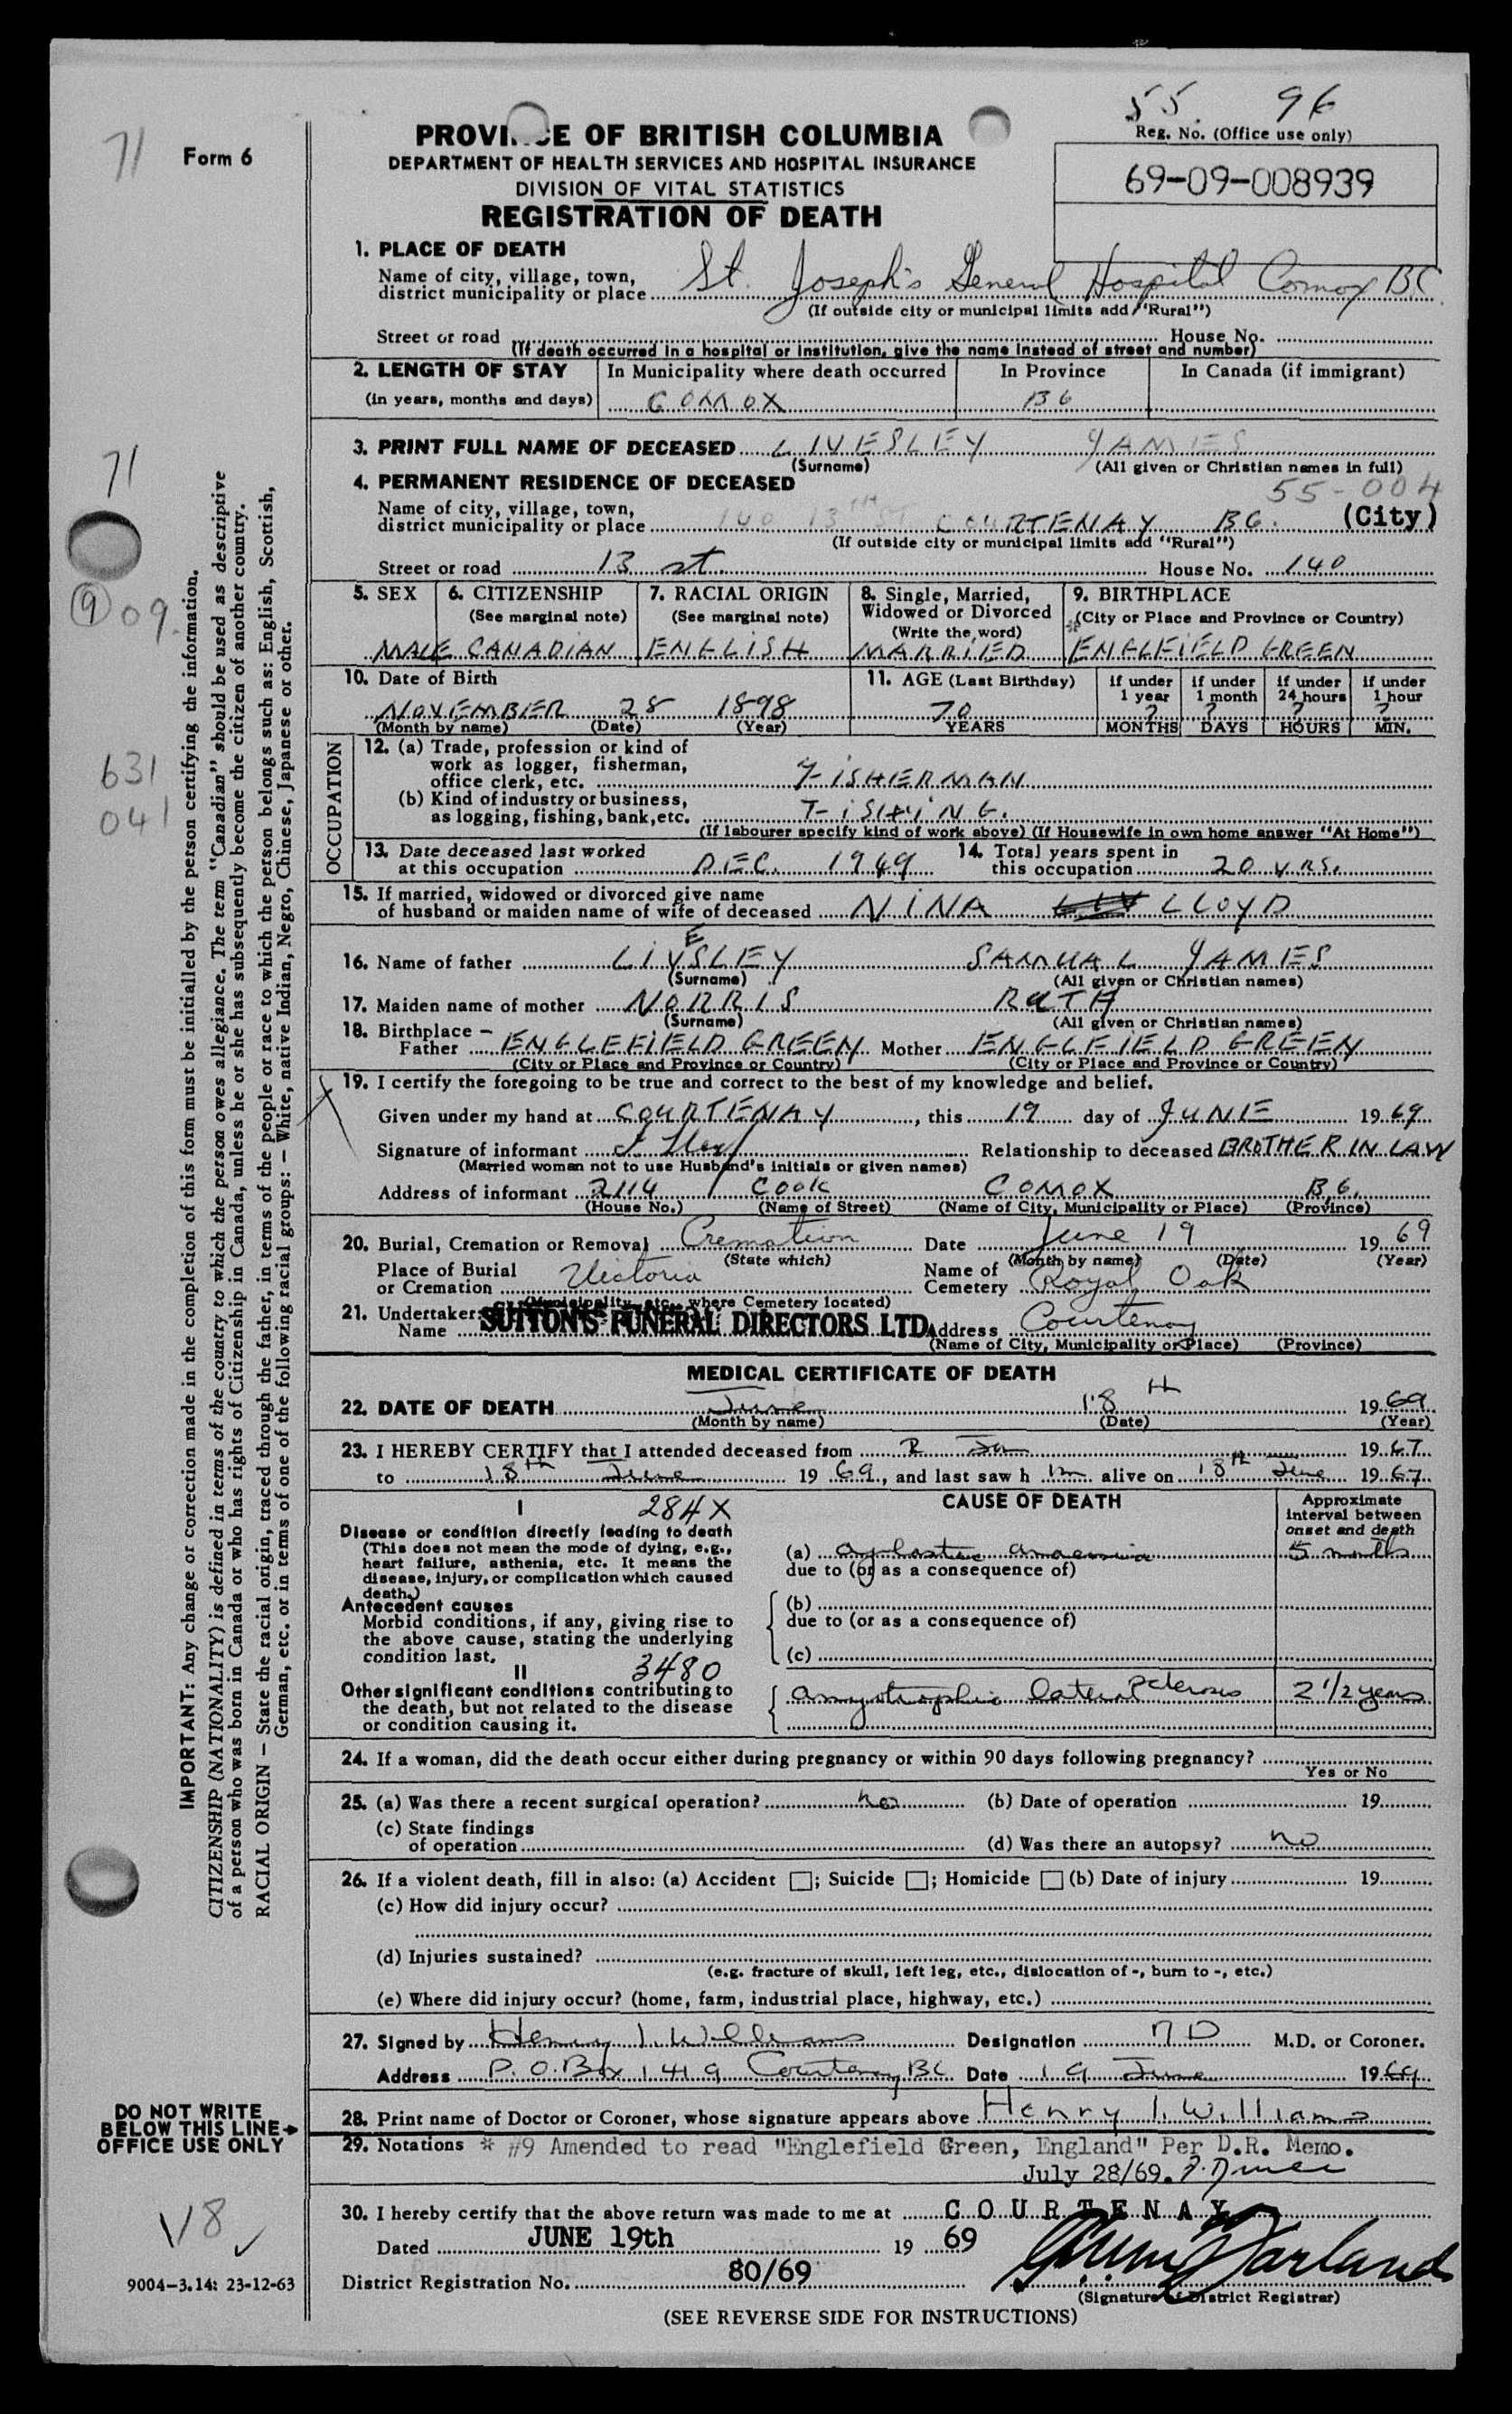 55. 96
71
Form 6
PROVI E OF BRITISH COLUMBIA
DEPARTMENT OF HEALTH SERVICES AND HOSPITAL INSURANCE
DIVISION OF VITAL STATISTICS
REGISTRATION OF DEATH
Reg. No. (Office use only)
69-09-008939
1. PLACE OF DEATH
Name of city, village, town,
district municipality or place St. Joseph's General Hospital Comox BC
(If outside city or municipal limits add "Rural")
Street or road House No.
(If death occurred in a hospital or institution, give the name instead of street and number)
2. LENGTH OF STAY In Municipality where death occurred In Province In Canada (if immigrant)
(in years, months and days) COMOX BC
3. PRINT FULL NAME OF DECEASED LIVESLEY JAMES
(Surname) (All given or Christian names in full)
4. PERMANENT RESIDENCE OF DECEASED 55-004
Name of city, village, town,
district municipality or place 140 13TH ST COURTENAY BC. (City)
(If outside city or municipal limits add "Rural")
Street or road 13 st. House No. 140
5. SEX 6. CITIZENSHIP 7. RACIAL ORIGIN 8. Single, Married, 9. BIRTHPLACE
(See marginal note) (See marginal note) Widowed or Divorced (City or Place and Province or Country)
(Write the word) *
MALE CANADIAN ENGLISH MARRIED ENGLFIELD GREEN
10. Date of Birth 11. AGE (Last Birthday) if under 1 year if under 1 month if under 24 hours if under 1 hour
NOVEMBER 28 1898 70 ? ? ? ?
(Month by name) (Date) (Year) YEARS MONTHS DAYS HOURS MIN.
OCCUPATION
12. (a) Trade, profession or kind of
work as logger, fisherman,
office clerk, etc. FISHERMAN
(b) Kind of industry or business,
as logging, fishing, bank, etc. FISHING.
(If labourer specify kind of work above) (If Housewife in own home answer "At Home")
13. Date deceased last worked 14. Total years spent in
at this occupation DEC. 1949 this occupation 20 YRS.
15. If married, widowed or divorced give name
of husband or maiden name of wife of deceased NINA LLOYD
16. Name of father LIVESLEY SAMUAL JAMES
(Surname) (All given or Christian names)
17. Maiden name of mother NORRIS RUTH
(Surname) (All given or Christian names)
18. Birthplace –
Father ENGLEFIELD GREEN Mother ENGLFIELD GREEN
(City or Place and Province or Country) (City or Place and Province or Country)
19. I certify the foregoing to be true and correct to the best of my knowledge and belief.
Given under my hand at COURTENAY, this 19 day of JUNE 1969
Signature of informant Relationship to deceased BROTHER IN LAW
(Married woman not to use Husband's initials or given names)
Address of informant 2114 COOK COMOX B.C.
(House No.) (Name of Street) (Name of City, Municipality or Place) (Province)
20. Burial, Cremation or Removal Cremation Date June 19 1969
(State which) (Month by name) (Date) (Year)
Place of Burial Name of
or Cremation Victoria Cemetery Royal Oak
(Municipality, etc., where Cemetery located)
21. Undertaker:
Name SUTTON'S FUNERAL DIRECTORS LTD. Address Courtenay
(Name of City, Municipality or Place) (Province)
MEDICAL CERTIFICATE OF DEATH
22. DATE OF DEATH June 18th 1969
(Month by name) (Date) (Year)
23. I HEREBY CERTIFY that I attended deceased from 2 Jan 1967
to 18th June 1969, and last saw h im alive on 18th June 1967
I 284X CAUSE OF DEATH Approximate interval between onset and death
Disease or condition directly leading to death
(This does not mean the mode of dying, e.g.,
heart failure, asthenia, etc. It means the
disease, injury, or complication which caused
death.)
(a) aplastic anaemia 5 months
due to (or as a consequence of)
Antecedent causes
Morbid conditions, if any, giving rise to
the above cause, stating the underlying
condition last.
(b)
due to (or as a consequence of)
(c)
II 3480
Other significant conditions contributing to
the death, but not related to the disease
or condition causing it.
amyotrophic lateral sclerosis 2 1/2 years
24. If a woman, did the death occur either during pregnancy or within 90 days following pregnancy?
Yes or No
25. (a) Was there a recent surgical operation? no (b) Date of operation 19
(c) State findings
of operation (d) Was there an autopsy? no
26. If a violent death, fill in also: (a) Accident ; Suicide ; Homicide (b) Date of injury 19
(c) How did injury occur?
(d) Injuries sustained?
(e.g. fracture of skull, left leg, etc., dislocation of -, burn to -, etc.)
(e) Where did injury occur? (home, farm, industrial place, highway, etc.)
27. Signed by Henry I. Williams Designation MD M.D. or Coroner.
Address P.O. Box 1419 Courtenay BC Date 19 June 1969
28. Print name of Doctor or Coroner, whose signature appears above Henry I. Williams
29. Notations * #9 Amended to read "Englefield Green, England" Per D.R. Memo.
July 28/69.
30. I hereby certify that the above return was made to me at COURTENAY
Dated JUNE 19th 19 69
District Registration No. 80/69
(Signature of District Registrar)
(SEE REVERSE SIDE FOR INSTRUCTIONS)
71
9 09
631
041
IMPORTANT: Any change or correction made in the completion of this form must be initialled by the person certifying the information.
CITIZENSHIP (NATIONALITY) is defined in terms of the country to which the person owes allegiance. The term "Canadian" should be used as descriptive
of a person who was born in Canada or who has rights of Citizenship in Canada, unless he or she has subsequently become the citizen of another country.
RACIAL ORIGIN – State the racial origin, traced through the father, in terms of the people or race to which the person belongs such as: English, Scottish,
German, etc. or in terms of one of the following racial groups: – White, native Indian, Negro, Chinese, Japanese or other.
DO NOT WRITE
BELOW THIS LINE
OFFICE USE ONLY
118
9004-3.14: 23-12-63